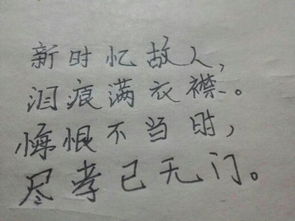 新时忆故人，
泪痕满衣襟。
悔恨不当时，
尽孝已无门。